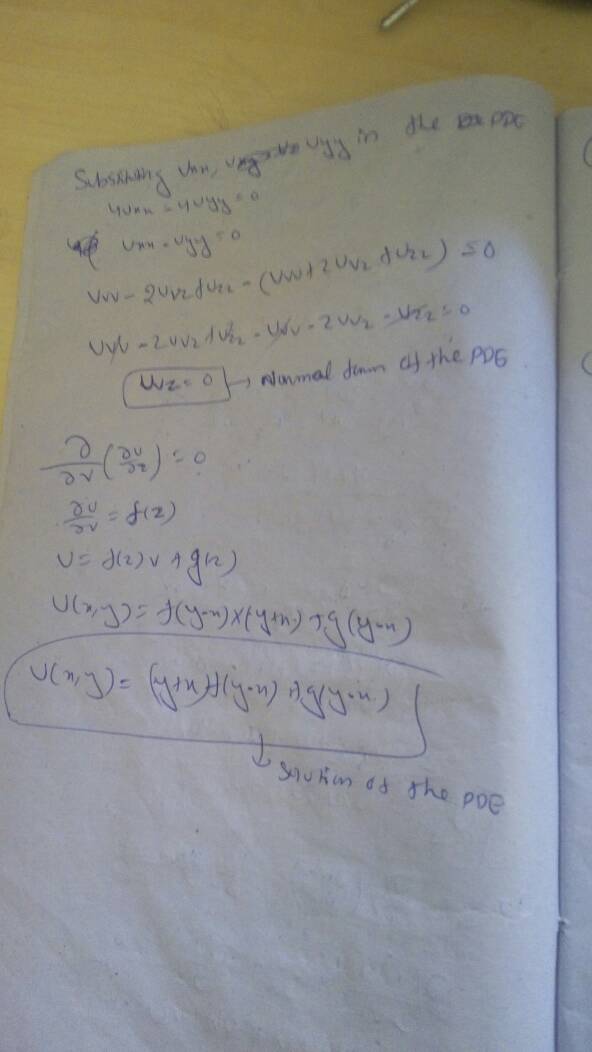 Substituting Uxx, Uyy in the PDE
4Uxx - 4Uyy = 0
Uxx - Uyy = 0
Uvv - 2Uvz + Uzz - (Uvv + 2Uvz + Uzz) = 0
Uvv - 2Uvz + Uzz - Uvv - 2Uvz - Uzz = 0
Uvz = 0 → Normal form of the PDE
∂/∂v (∂U/∂z) = 0
∂U/∂v = f(z)
U = f(z)v + g(z)
U(x,y) = f(y-x)×(y+x) + g(y-x)
U(x,y) = (y+x)f(y-x) + g(y-x)
↳ Solution of the PDE